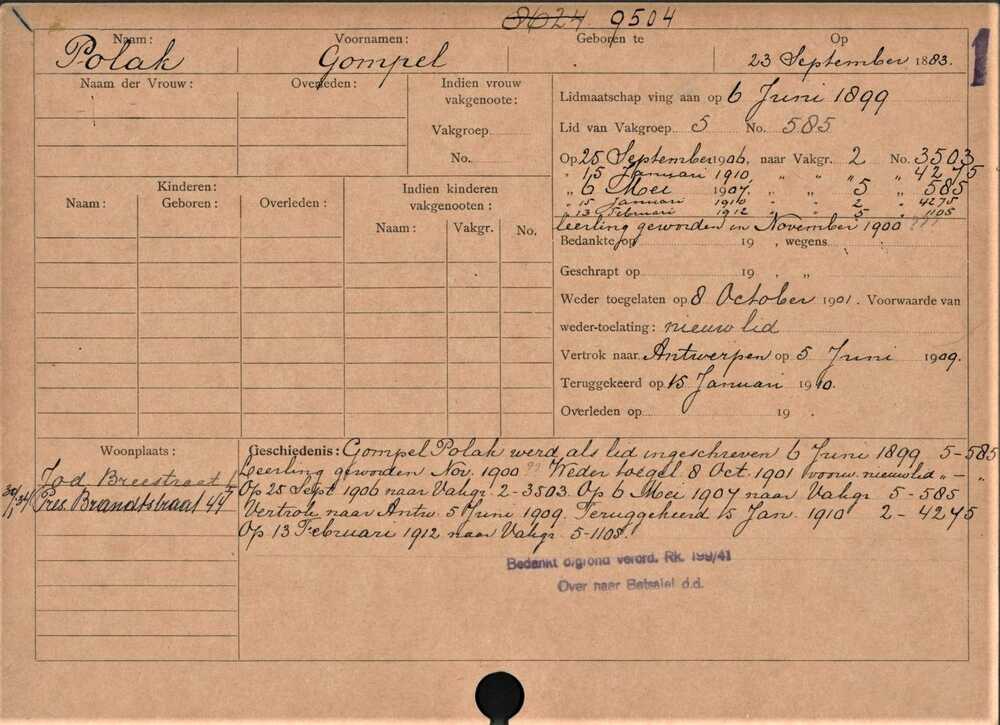 8624 9504
Naam: Voornamen: Geboren te Op
Polak Gompel 23 September 1883.
1
Naam der Vrouw: Overleden: Indien vrouw vakgenoote:
Vakgroep
No.
Lidmaatschap ving aan op 6 Juni 1899
Lid van Vakgroep 5 No. 585
Op 25 September 1906, naar Vakgr. 2 No. 3503
" 15 Januari 1910, " " 4275
" 6 Mei 1907. " " 5 " 585
" 15 Januari 1910 " " 2 " 4275
" 13 Februari 1912 " " 5 " 1105
leerling geworden in November 1900
Bedankte op 19 , wegens
Geschrapt op 19 , "
Weder toegelaten op 8 October 1901. Voorwaarde van
weder-toelating: nieuw lid
Vertrok naar Antwerpen op 5 Juni 1909.
Teruggekeerd op 15 Januari 1910.
Overleden op 19 .
Kinderen: Indien kinderen vakgenooten:
Naam: Geboren: Overleden: Naam: Vakgr. No.
Woonplaats:
Jod. Breestraat
Pres. Brandtstraat 44
Geschiedenis: Gompel Polak werd als lid ingeschreven 6 Juni 1899 5-585
Leerling geworden Nov. 1900 Weder toegel. 8 Oct. 1901 voorw. nieuw lid " — "
Op 25 Sept 1906 naar Vakgr. 2-3503. Op 6 Mei 1907 naar Vakgr 5-585
Vertrok naar Antw. 5 Juni 1909. Teruggekeerd 15 Jan. 1910 2-4275
Op 13 Februari 1912 naar Vakgr. 5-1108.
Bedankt o/grond verord. Rk. 199/41
Over naar Betsalel d.d.